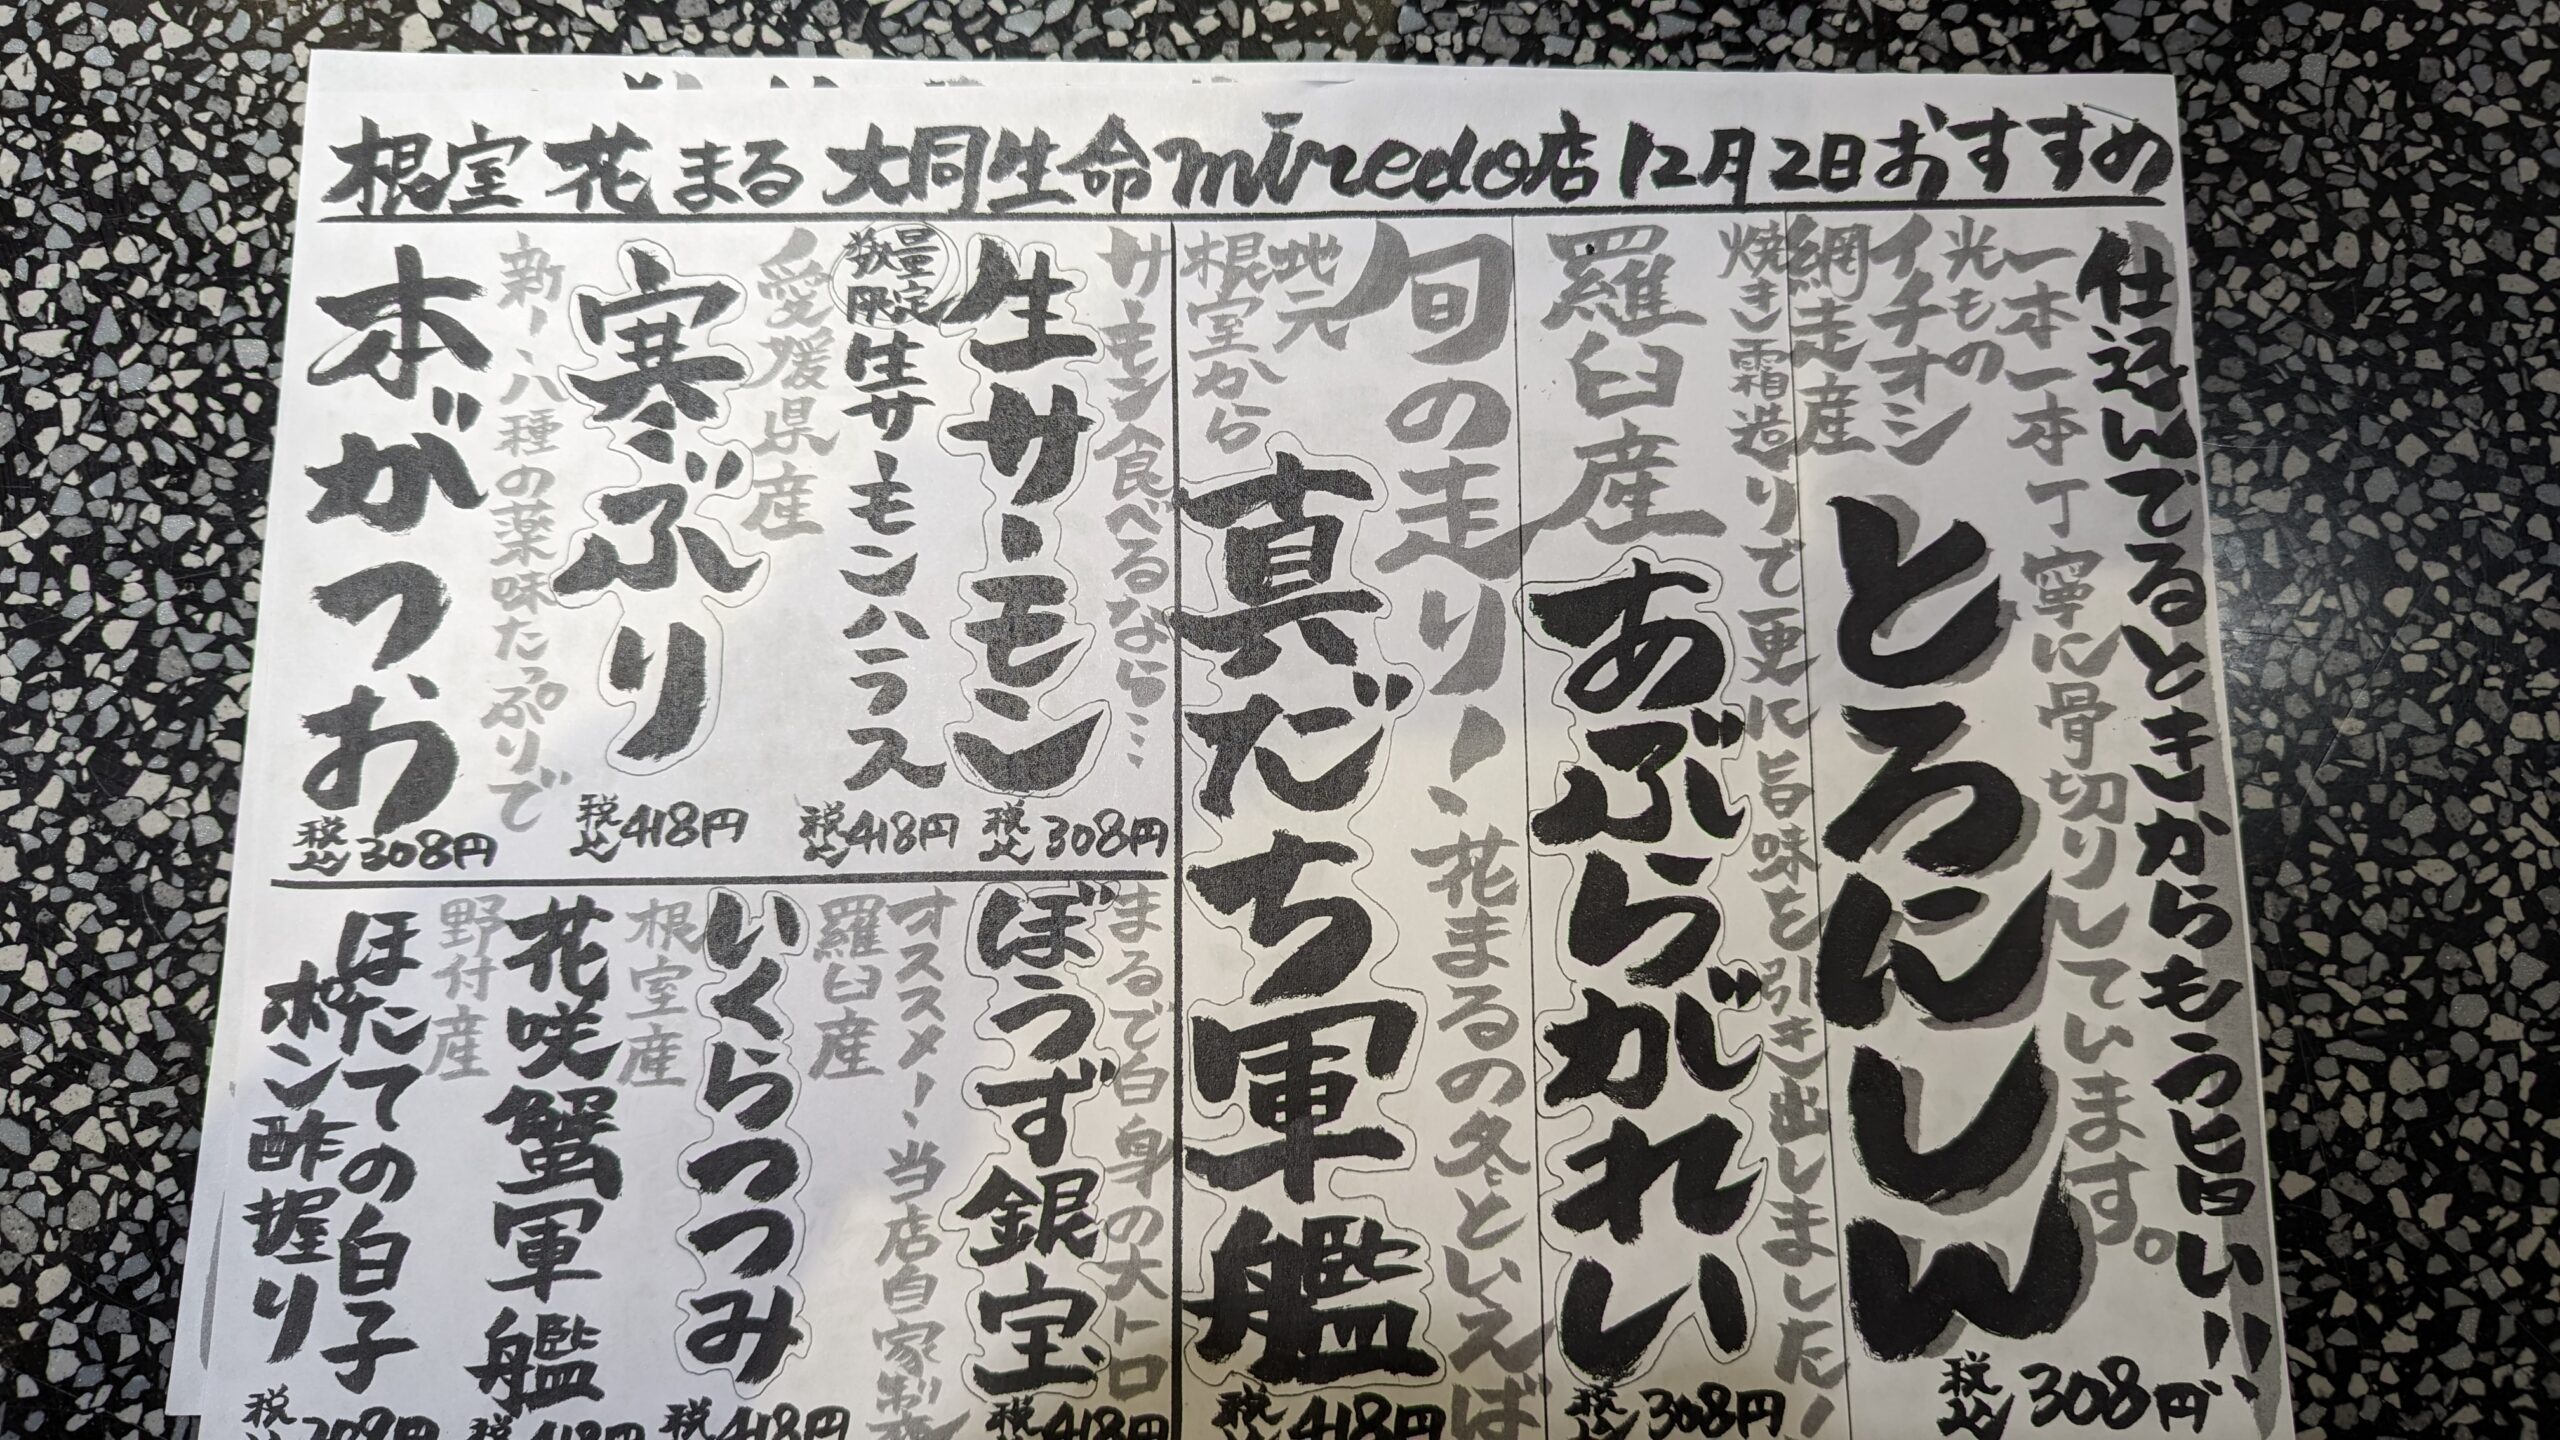 根室花まる大同生命miredo店12月2日おすすめ
仕込んでるときからもう旨い!!
一本一本丁寧に骨切りしています。
光もの
イチオシ
網走産
とろにしん
税込308円
焼き霜造りで更に旨味を引き出しました!
羅臼産
あぶらがれい
税込308円
旬の走り!、花まるの冬といえば
地元
根室から
真だち軍艦
税込418円
サーモン食べるなら…
生サーモン
税込308円
数量限定
生サーモンハラス
税込418円
愛媛県産
寒ぶり
税込418円
新!、八種の薬味たっぷりで
本がつお
税込308円
まるで白身の大トロ
ぼうず銀宝
税込418円
オススメ!、当店自家製
羅臼産
いくらつつみ
税込418円
根室産
花咲蟹軍艦
税込418円
野付産
ほたての白子
ポン酢握り
税込308円